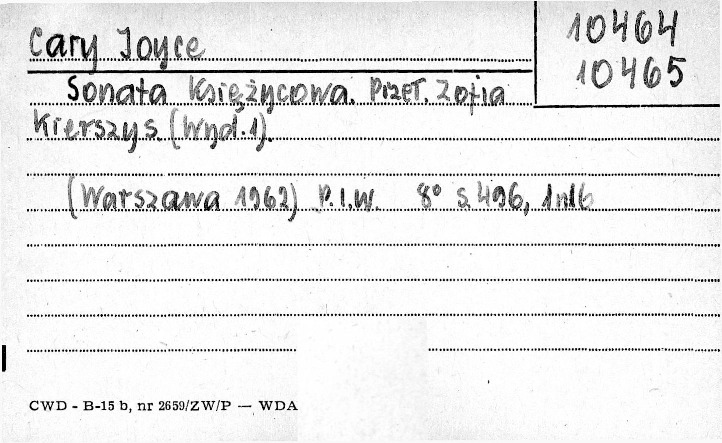 Cary Joyce
10464
10465
Sonata Księżycowa. Przeł. Zofia
Kierszys. (Wyd. 1).
(Warszawa 1962) P.I.W. 8° s. 496, 1 nlb
CWD - B-15 b, nr 2659/ZW/P — WDA